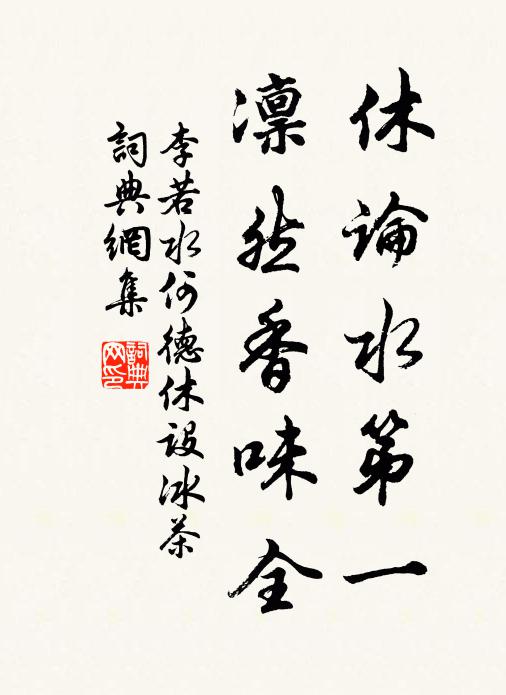 休論水第一
凛然香味全
李若水何德休設冰茶
詞典網集
詞典網印